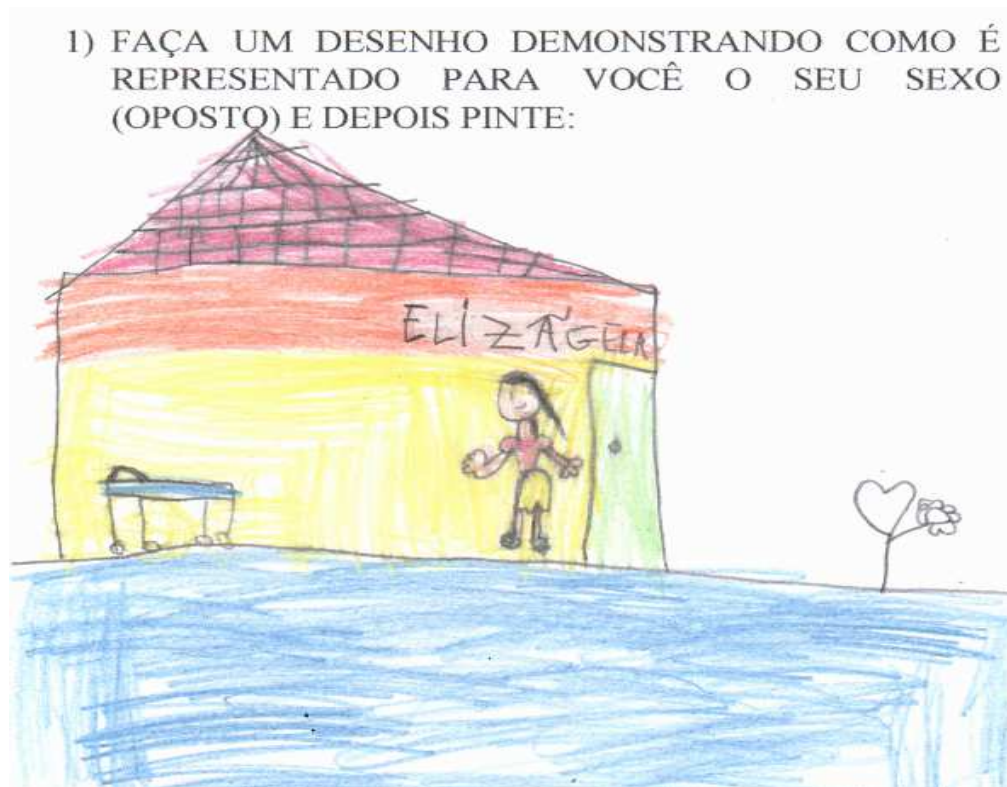 1) FAÇA UM DESENHO DEMONSTRANDO COMO É
REPRESENTADO PARA VOCÊ O SEU SEXO
(OPOSTO) E DEPOIS PINTE:
ELIZÃGELA